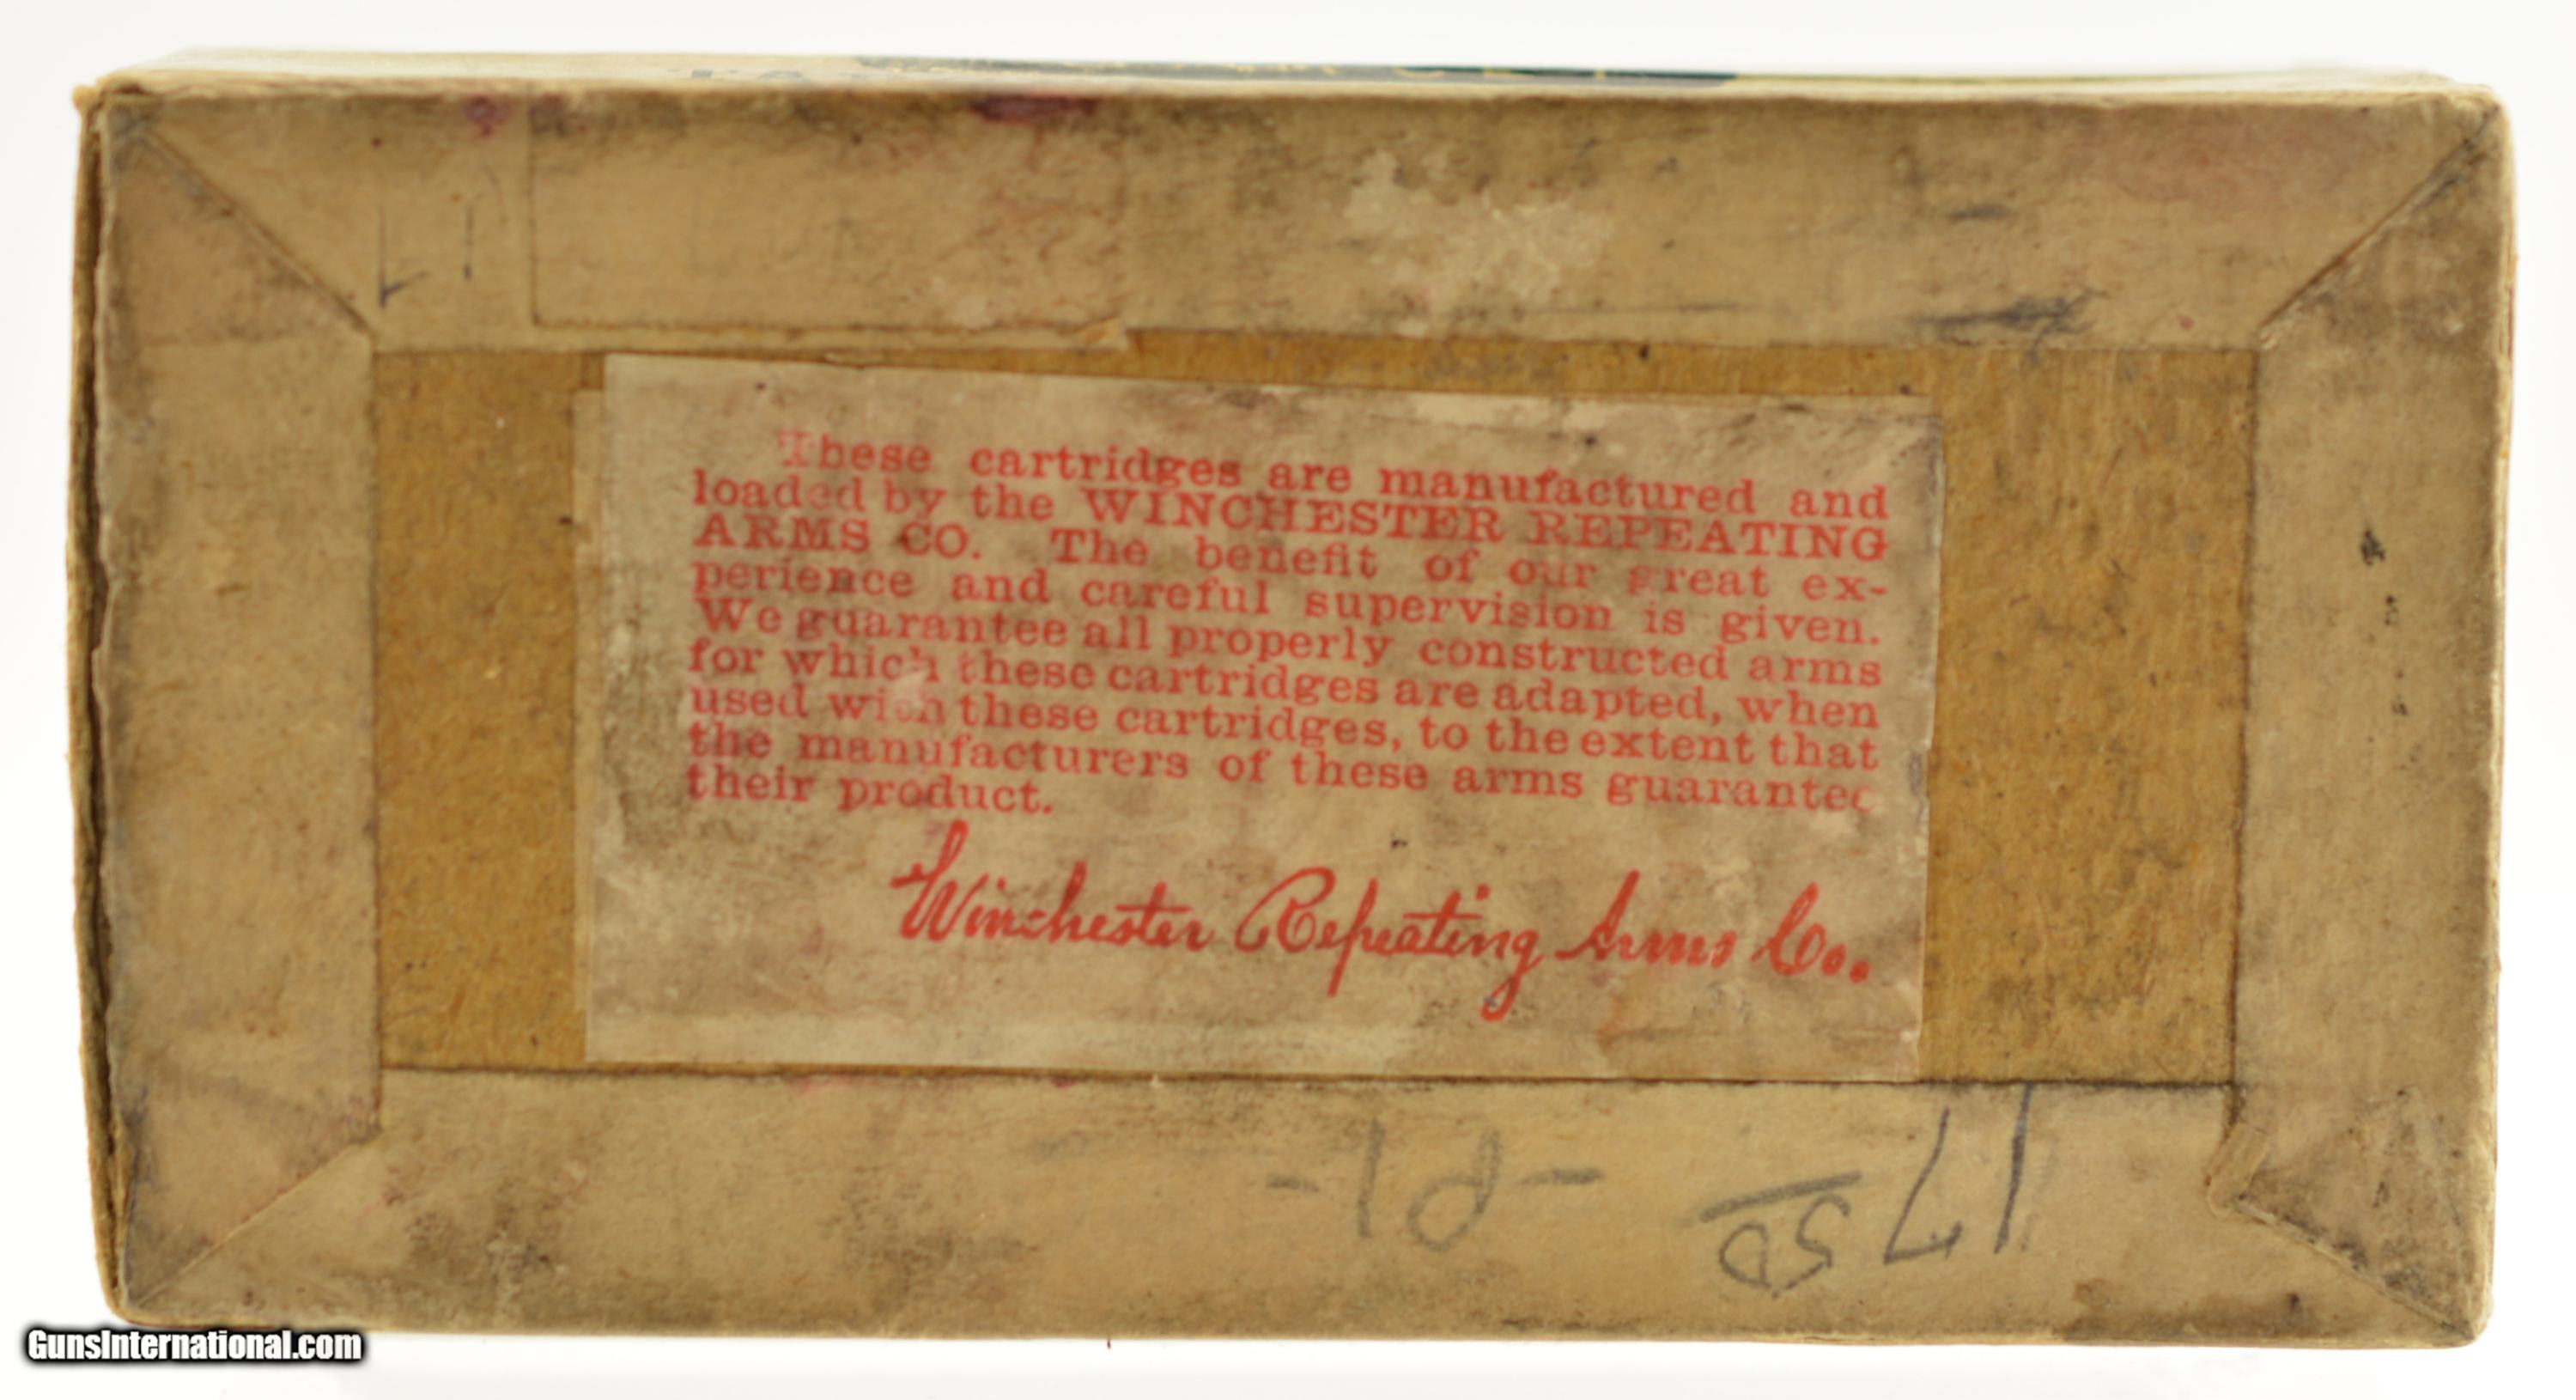 These cartridges are manufactured and
loaded by the WINCHESTER REPEATING
ARMS CO. The benefit of our great ex-
perience and careful supervision is given.
We guarantee all properly constructed arms
for which these cartridges are adapted, when
used with these cartridges, to the extent that
the manufacturers of these arms guarantee
their product.
Winchester Repeating Arms Co.
17 50
-P1-
GunsInternational.com